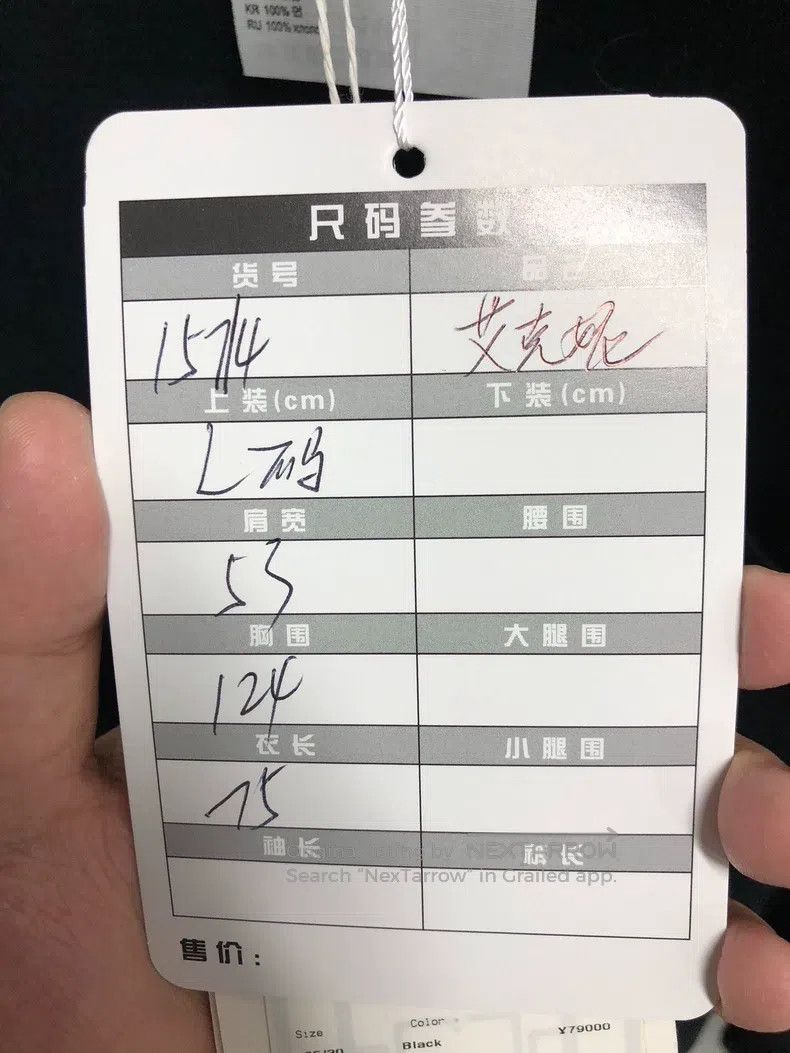 KR 100% 면
RU 100% хлопок
尺码参数
货号 品名
1574 艾克妮
上装(cm) 下装(cm)
L码
肩宽 腰围
53
胸围 大腿围
124
衣长 小腿围
75
袖长 裤长
Original listing by NEXTARROW
Search "NexTarrow" in Grailed app.
售价:
Size Color ¥79000
Black